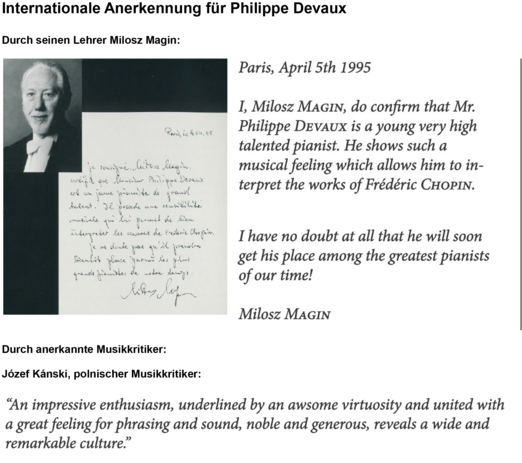 Internationale Anerkennung für Philippe Devaux
Durch seinen Lehrer Milosz Magin:
Paris, le 5.04.95
je soussigné, Milosz Magin,
certifie que Monsieur Philippe Devaux
est un jeune pianiste de grand
talent. Il possède une sensibilité
musicale qui lui permet de bien
interpréter les œuvres de Frédéric Chopin.
je ne doute pas qu'il prendra
bientôt place parmi les plus
grands pianistes de notre temps
Milosz Magin
Paris, April 5th 1995
I, Milosz MAGIN, do confirm that Mr.
Philippe DEVAUX is a young very high
talented pianist. He shows such a
musical feeling which allows him to in-
terpret the works of Frédéric CHOPIN.
I have no doubt at all that he will soon
get his place among the greatest pianists
of our time!
Milosz MAGIN
Durch anerkannte Musikkritiker:
Józef Kánski, polnischer Musikkritiker:
“An impressive enthusiasm, underlined by an awsome virtuosity and united with
a great feeling for phrasing and sound, noble and generous, reveals a wide and
remarkable culture.”